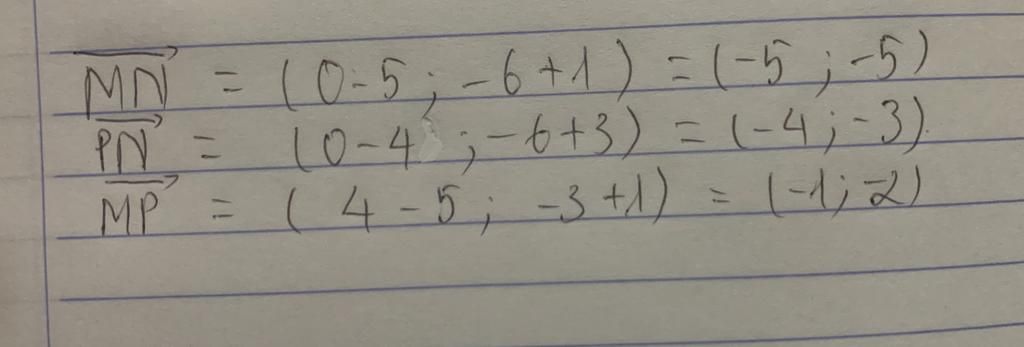 $\overrightarrow{MN}$ = (0-5 ; -6+1) = (-5 ; -5)
$\overrightarrow{PN}$ = (0-4 ; -6+3) = (-4 ; -3).
$\overrightarrow{MP}$ = (4-5 ; -3+1) = (-1 ; -2)